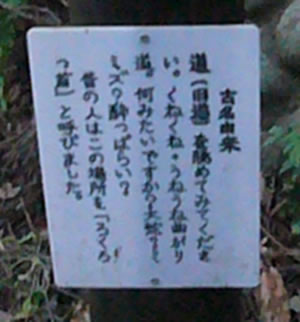 古名由来
道(旧道)を眺めてみてくださ
い。くねくね・うねうね曲がり
道。何みたいですか?大蛇?ミ
ミズ?酔っぱらい?
昔の人はこの場所を「ろくろ
っ首」と呼びました。